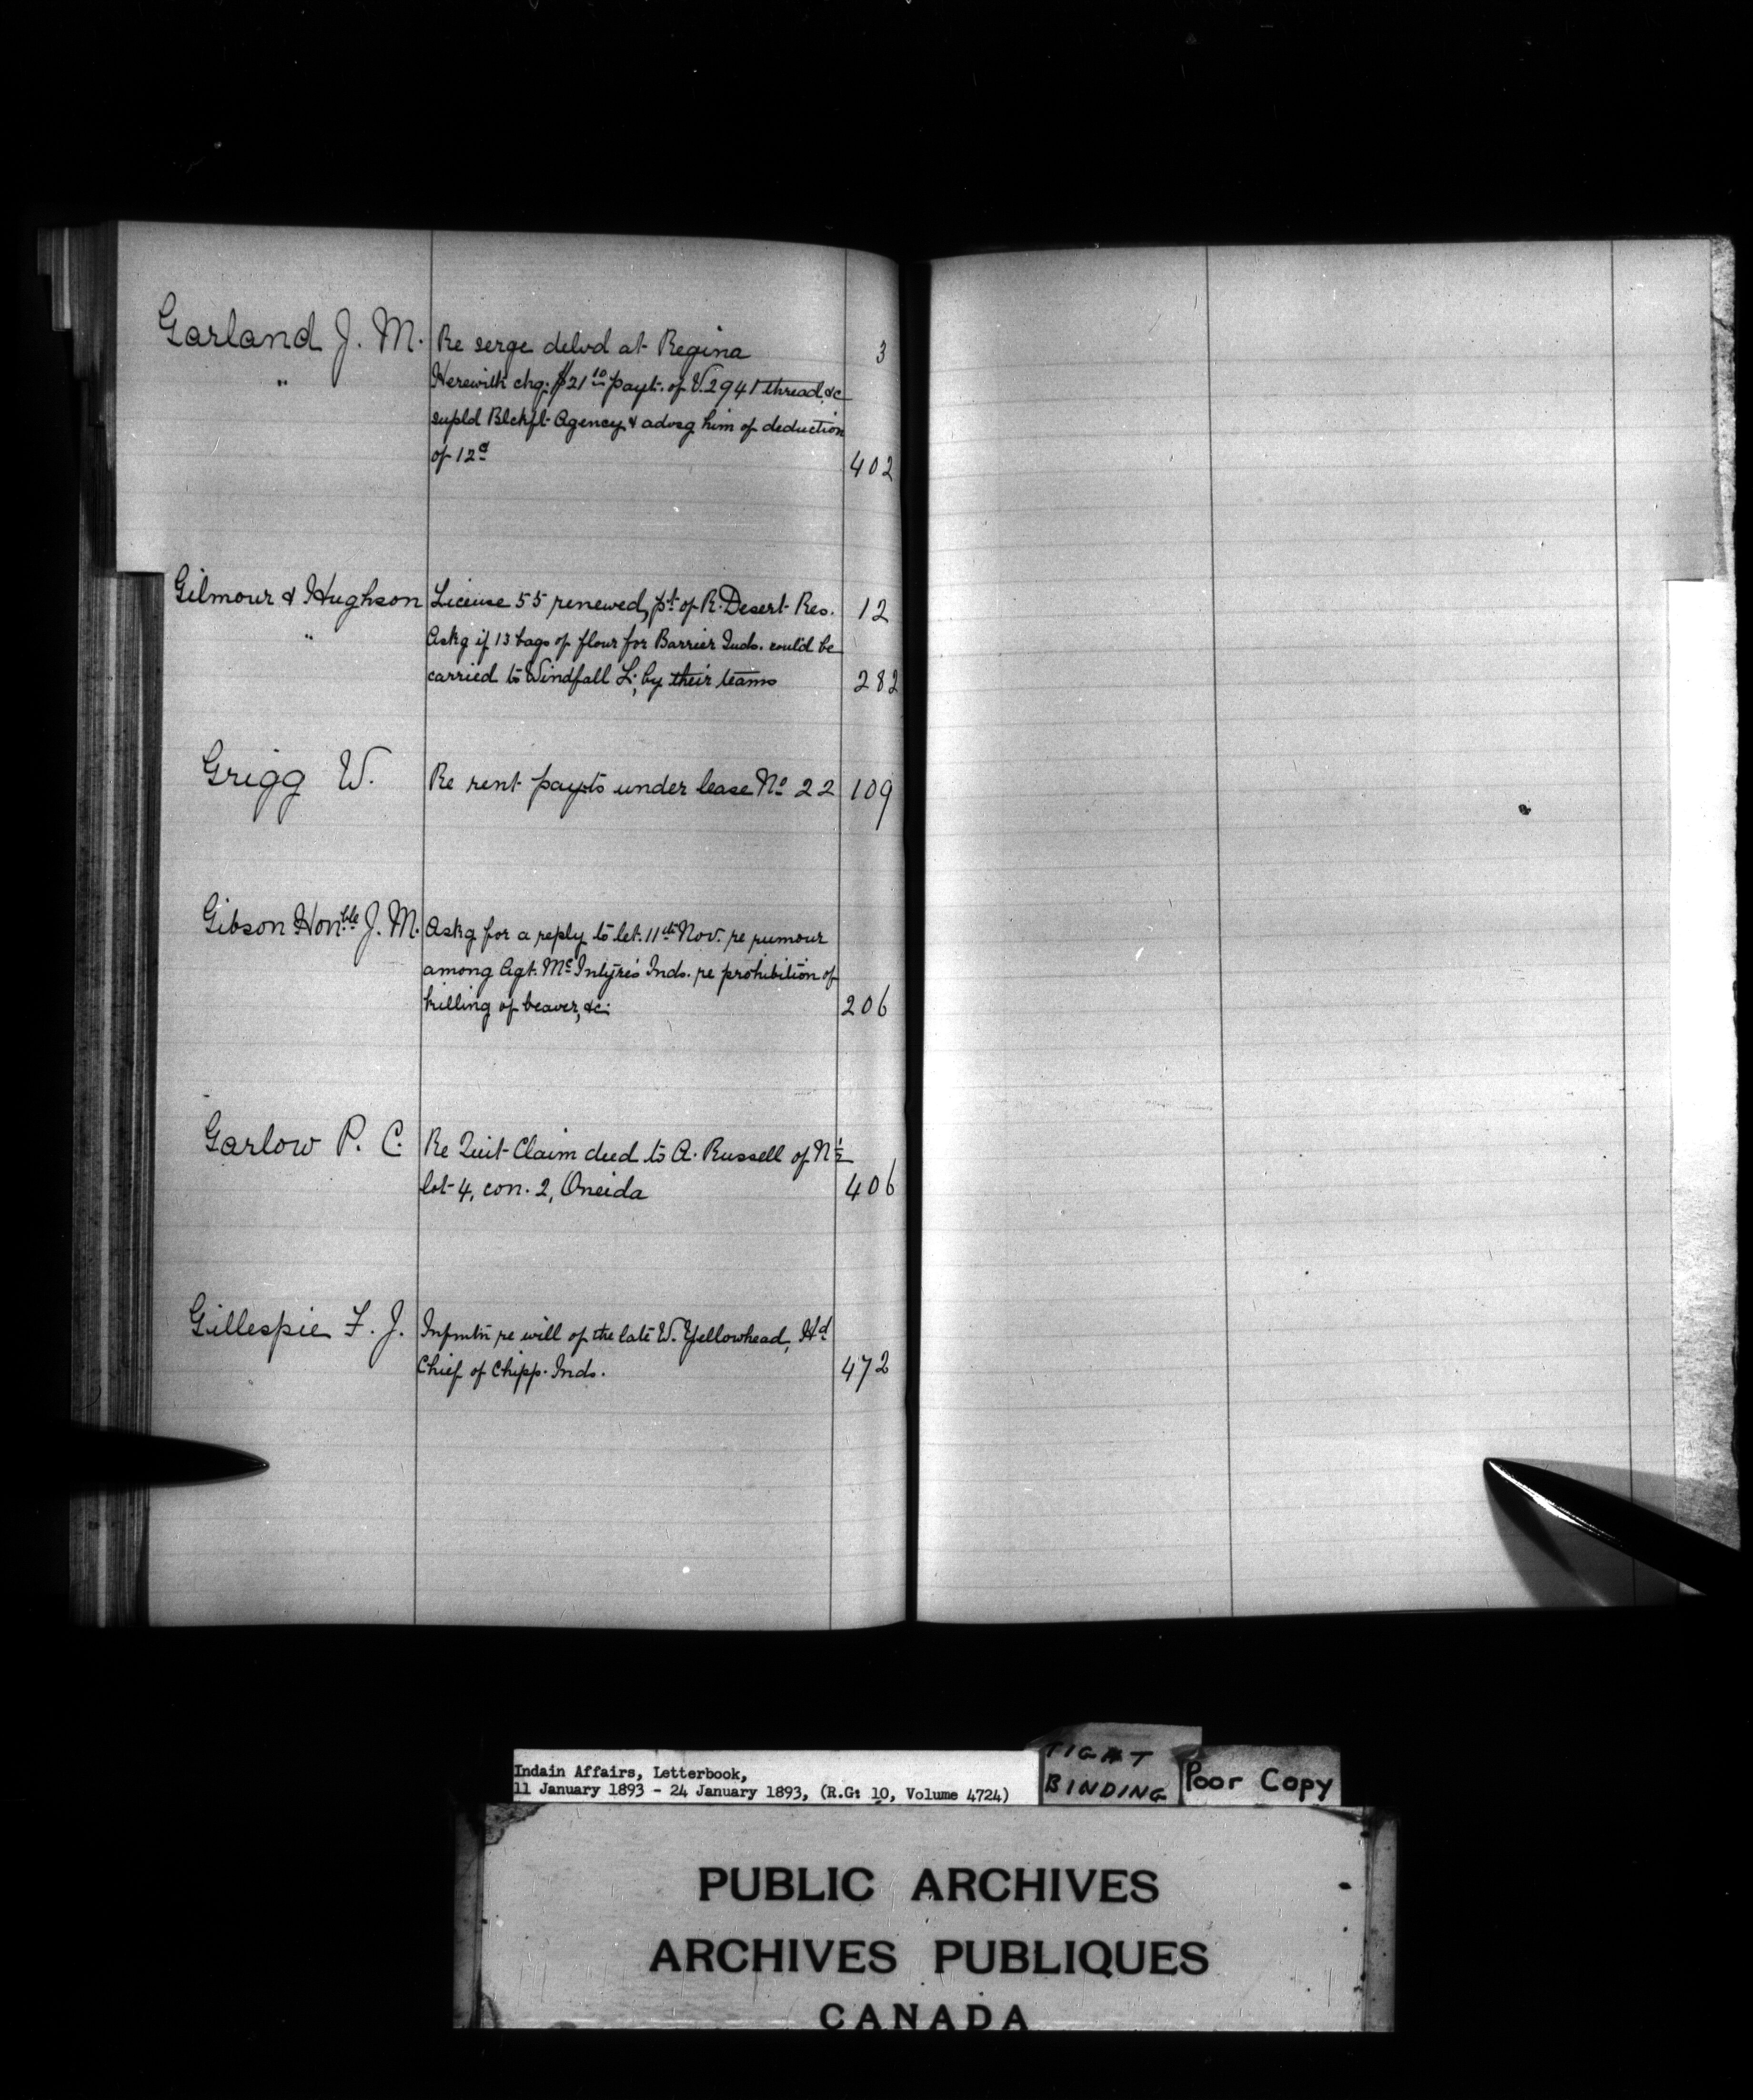 Garland J. M. Re serge delvd at Regina 3
" Herewith chq. $21 10 payt. of V. 2941 thread, &c
supld Blckft Agency & advsg him of deduction
of 12c 402
Gilmour & Hughson License 55 renewed, pt of R. Desert Res. 12
" Askg if 13 bags of flour for Barrier Inds. could be
carried to Windfall L; by their teams 282
Grigg W. Re rent payts under lease No 22 109
Gibson Honble J. M. Askg for a reply to let. 11th Nov. re rumour
among Agt. McIntyre's Inds. re prohibition of
killing of beaver, &c. 206
Garlow P. C. Re Quit Claim deed to A. Russell of N ½
lot 4, con. 2, Oneida 406
Gillespie F. J. Infmtn re will of the late W. Yellowhead, Hd
Chief of Chipp. Inds. 472
Indain Affairs, Letterbook,
11 January 1893 - 24 January 1893, (R.G: 10, Volume 4724)
TIGHT
BINDING
Poor Copy
PUBLIC ARCHIVES
ARCHIVES PUBLIQUES
CANADA